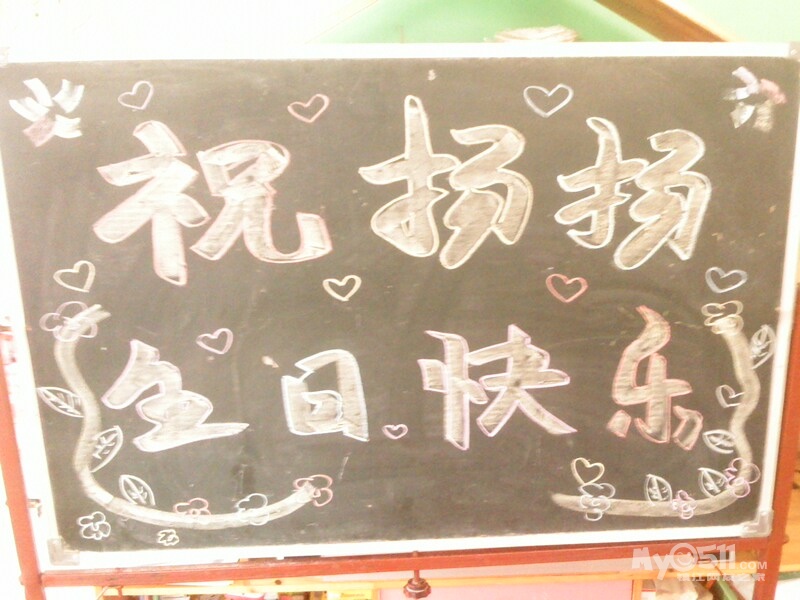 祝扬扬
生日快乐
My0511
.COM